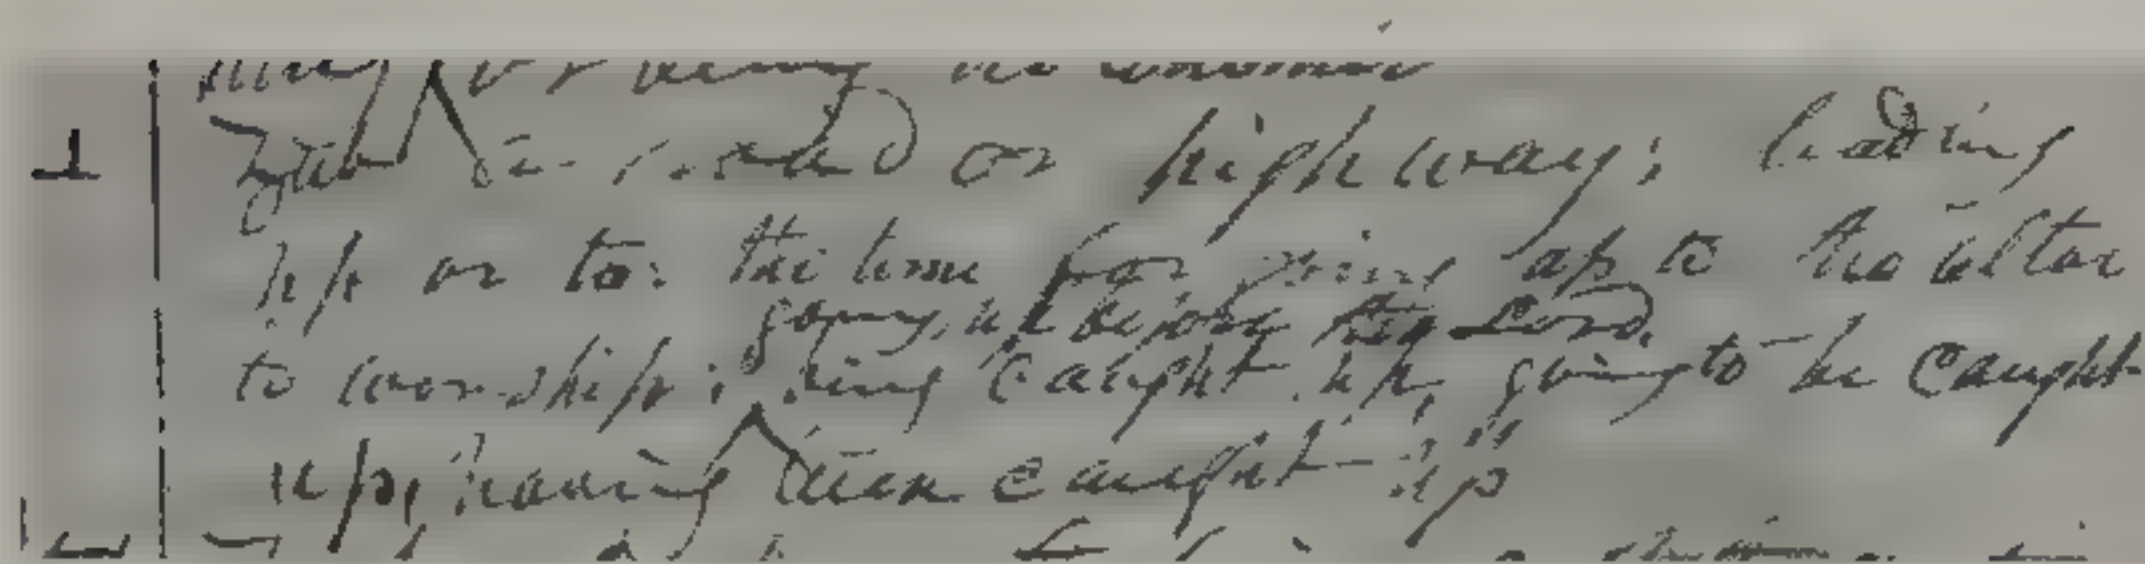 or being
road or highway; leading
up or to: the time for going up to the altar
going up before the Lord,
to worship; being caught up, going to be caught
up, having been caught up